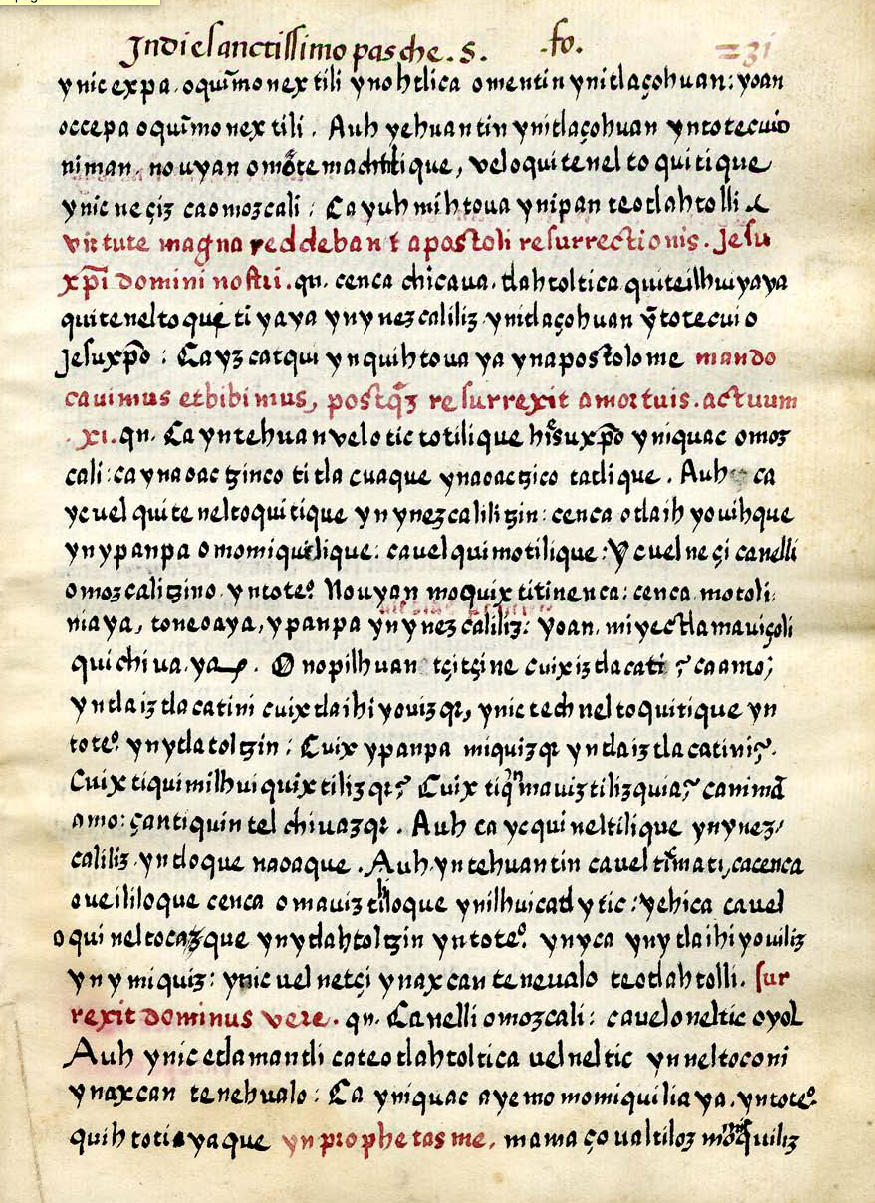 Jn die sanctissimo pasche. S. .fo. 31
ynic expa. oquīmonextili ynohtlica omentin ynitlaçohuan: yoan
occepa oquīmonextili. Auh yehuantin ynitlaçohuan yntotecuio
niman, nouyan omōtemachtilique, vel oquiteneltoquitique
ynic neçiz ca omozcali: Ca yuh mihtoua ynipan teotlahtolli
virtute magna reddebant apostoli resurrectionis. Jesu
xp̄i domini nostri. qn. cenca chicaua. tlahtoltica quiteilhuiyaya
quiteneltoquetiyaya yny nezcaliliz ynitlaçohuan ȳtotecuio
Jesuxp̄o: Ca yz catqui ynquihtouaya ynapostolome mando
cauimus et bibimus, postq̄z resurrexit a mortuis. actuum
.xi. qn. Ca yntehuan vel otictotilique yniquac omoz
cali: ca ynaoactzinco titlacuaque ynaoactzico tatlique. Auh ca
yc uel quiteneltoquitique yn ynezcalilitzin: cenca otlaihyouihque
ynypanpa omomiquilique: ca uel quimotilique: Yc uel neçi ca nelli
omozcalitzino yntote.º Nouyan moquixtitinenca: cenca motoli
niaya, toneoaya, ypanpa yny nezcaliliz: yoan, miyec tlamauiçoli
quichiuaya. O nopilhuan tçitçine cuix iztlacati? ca amo;
yntla iztlacatini cuix tlaihiyouizqr, ynic technneltoquitique yn
tote.º ynytlatoltzin: Cuix ypanpa miquizqr yntla iztlacatini?.
Cuix tiquimilhuiquixtilizqr? Cuix tiq̄nmauiztilizquia? ca nimā
amo: çan tiquintelchiuazqr. Auh ca yc quineltilique ynynez/
caliliz yntloque naoaque. Auh yntehuantin ca uel tīmati, ca cenca
oueililoque cenca omauiztililoque ynilhuicactlytic: yehica ca uel
oquineltocazque ynytlahtoltzin yntote.º ynyca yny tlaihiyouiliz
yny miquiz: ynic uel netçi ynaxcan teneualo teotlahtolli. sur
rexit dominus vere. qn. Ca nelli omozcali: ca uel oneltic oyol
Auh ynic etlamantli ca teotlahtoltica uel neltic ynneltoconi
ynaxcan tenehualo: Ca yniquac ayemo momiquiliaya. yntote.º
quihtotiayaque ynprophetasme, mamaçoualtiloz